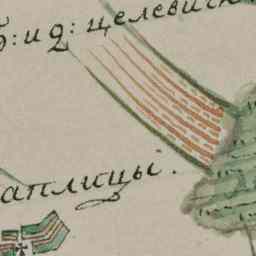 б: и д: целевичи
аплицы.